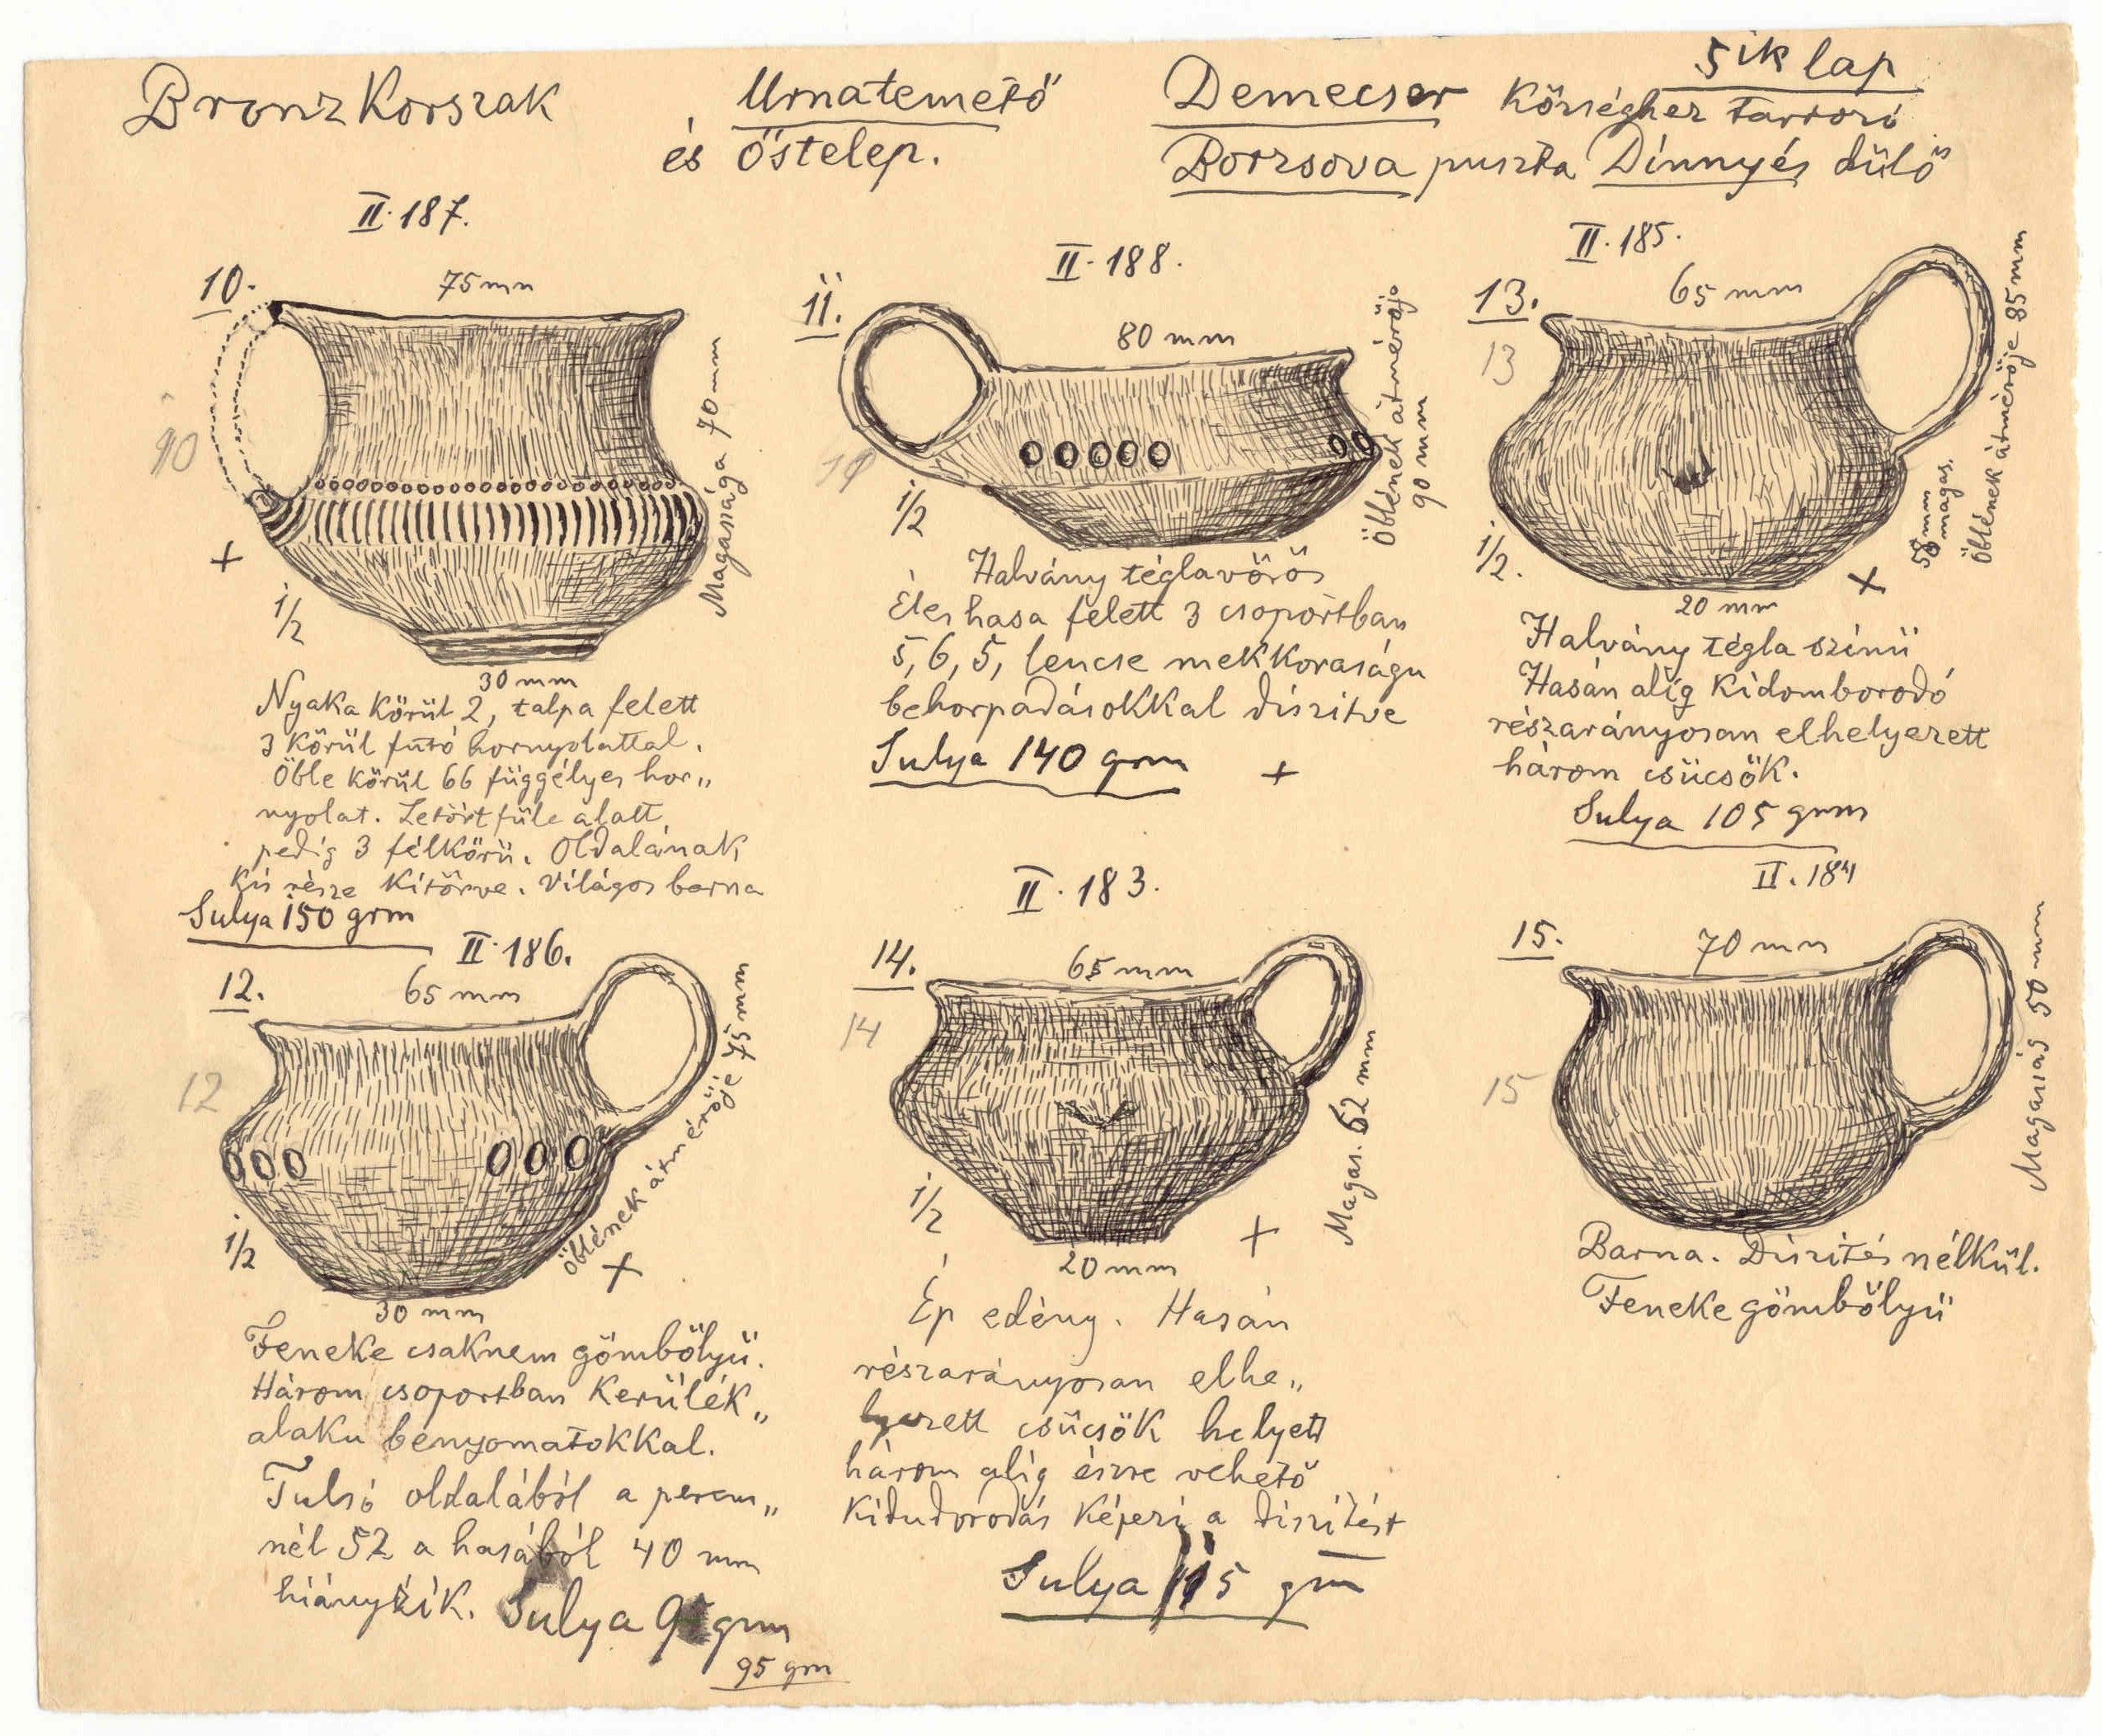 5ik lap
Bronz Korszak
Urnatemető
és őstelep.
Demecser Községhez tartozó
Borzsova puszta Dinnyés dülő
II. 187.
10.
75 mm
90
Magassága 70 mm
+
1/2
30 mm
Nyaka Körül 2, talpa felett
3 Körül futó hornyolattal.
Öble Körül 66 függélyes hor„
nyolat. Letört füle alatt
pedig 3 félkörü. Oldalának
kis része Kitörve. Világos barna
Sulya 150 grm
II. 188.
11.
80 mm
Öblének átmérője
90 mm
1/2
Halvány téglavörös
Éles hasa felett 3 csoportban
5, 6, 5, lencse mekkoraságu
behorpadásokkal diszitve
Sulya 140 grm
+
II. 185.
13.
13
65 mm
58 mm
magas.
Öblének átmérője 85 mm
1/2.
+
20 mm
Halvány tégla szinü
Hasán alig Kidomborodó
részarányosan elhelyezett
három csücsök.
Sulya 105 grm
II. 186.
12.
65 mm
12
Öblének átmérője 75 mm
1/2
+
30 mm
Feneke csaknem gömbölyü.
Három csoportban Kerülék„
alaku benyomatokkal.
Tulsó oldalából a perem„
nél 52 a hasából 40 mm
hiányzik. Sulya 95 grm
95 gm
II. 183.
14.
65 mm
14
Magas. 62 mm
1/2
+
20 mm
Ép edény. Hasán
részarányosan elhe„
lyezett csücsök helyett
három alig észre vehető
Kidudorodás Képezi a diszitést
Sulya 115 gm
II. 184
15.
70 mm
15
Magasság 50 mm
Barna. Diszités nélkül.
Feneke gömbölyü